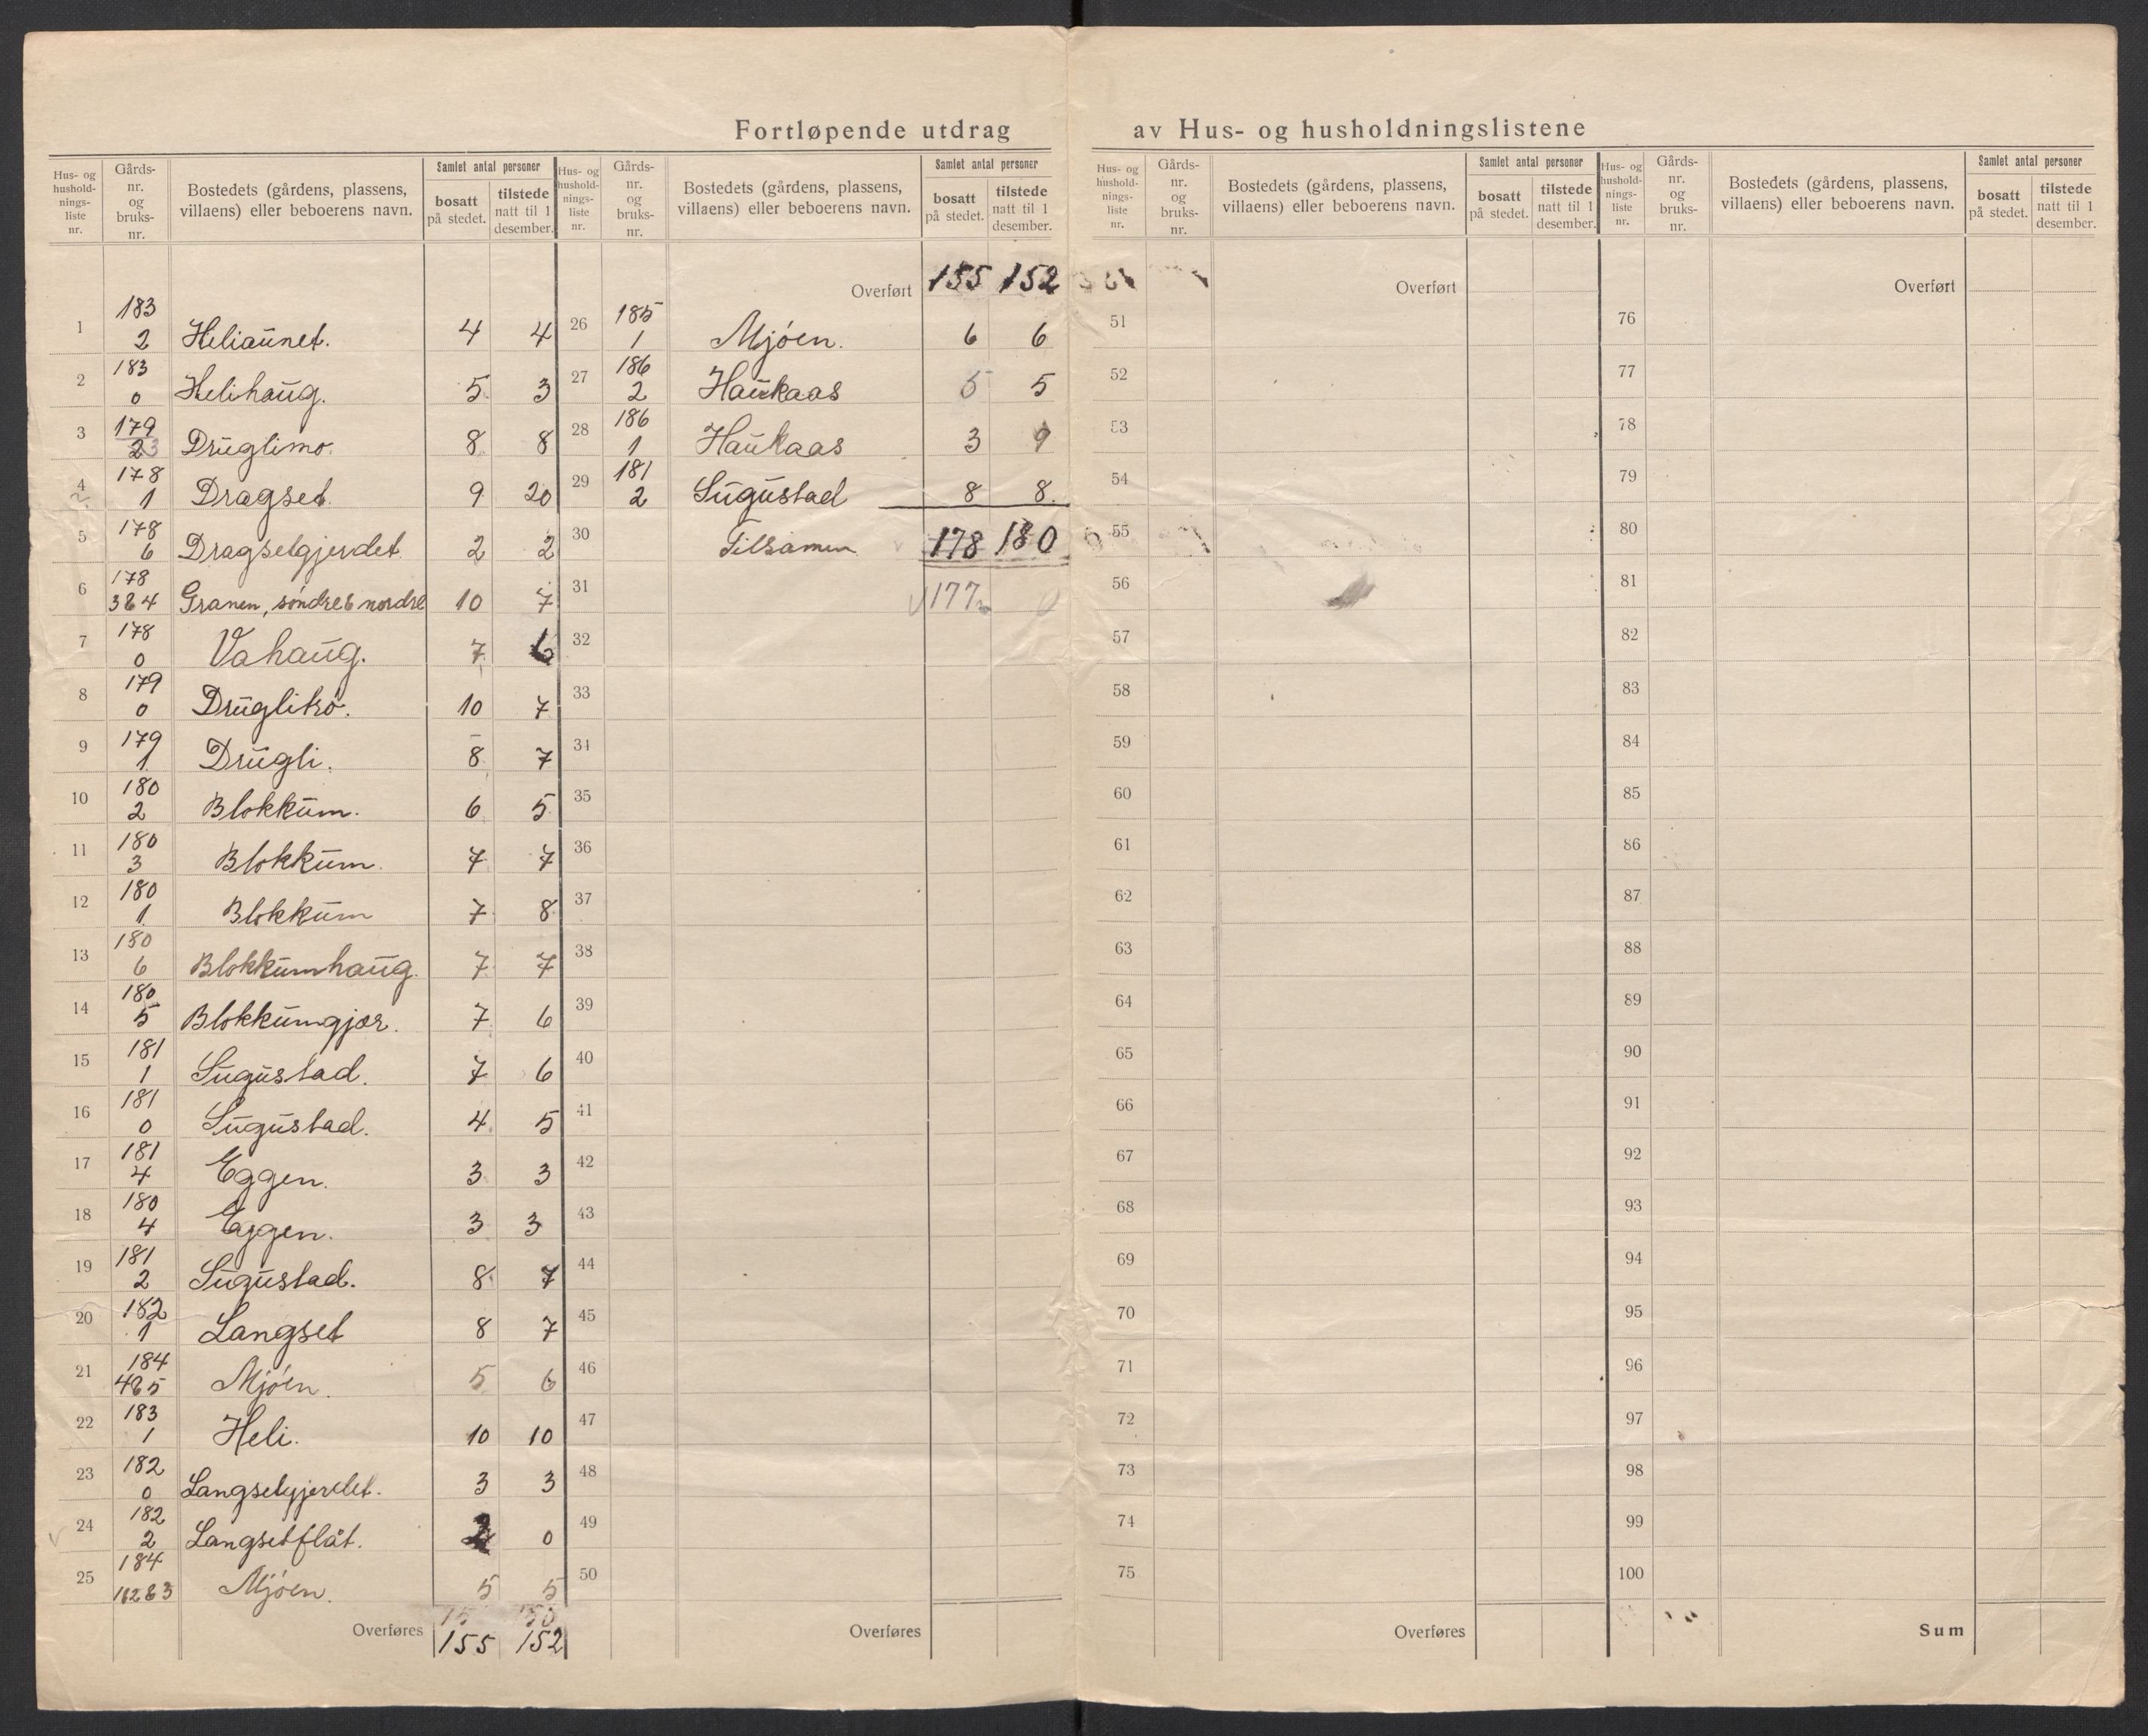 Fortløpende utdrag av Hus- og husholdningslistene
Hus- og hushold-nings-liste nr. | Gårds-nr. og bruks-nr. | Bostedets (gårdens, plassens, villaens) eller beboerens navn. | Samlet antal personer | bosatt på stedet. | tilstede natt til 1 desember.
1 183 2 Heliaunet. 4 4
2 183 0 Helihaug. 5 3
3 179 23 Druglimo. 8 8
4 178 1 Dragset. 9 20
5 178 6 Dragsetgjerdet. 2 2
6 178 3&4 Granen, søndre & nordre 10 7
7 178 0 Vahaug. 7 6
8 179 0 Druglitrø. 10 7
9 179 1 Drugli. 8 7
10 180 2 Blokkum. 6 5
11 180 3 Blokkum. 7 7
12 180 1 Blokkum 7 8
13 180 6 Blokkumhaug. 7 7
14 180 5 Blokkumgjær. 7 6
15 181 1 Sugustad. 7 6
16 181 0 Sugustad. 4 5
17 181 4 Eggen. 3 3
18 180 4 Eggen. 3 3
19 181 2 Sugustad. 8 7
20 182 1 Langset 8 7
21 184 4&5 Mjøen. 5 6
22 183 1 Heli. 10 10
23 182 0 Langsetgjerdet. 3 3
24 182 2 Langsetflåt. 2 0
25 184 1&2&3 Mjøen. 5 5
Overføres 155 152
Hus- og hushold-nings-liste nr. | Gårds-nr. og bruks-nr. | Bostedets (gårdens, plassens, villaens) eller beboerens navn. | Samlet antal personer | bosatt på stedet. | tilstede natt til 1 desember.
Overført 155 152
26 185 1 Mjøen. 6 6
27 186 2 Haukaas 5 5
28 186 1 Haukaas 3 9
29 181 2 Sugustad 8 8.
30 Tilsamen 178 180
31 177
32
33
34
35
36
37
38
39
40
41
42
43
44
45
46
47
48
49
50
Overføres
Hus- og hushold-nings-liste nr. | Gårds-nr. og bruks-nr. | Bostedets (gårdens, plassens, villaens) eller beboerens navn. | Samlet antal personer | bosatt på stedet. | tilstede natt til 1 desember.
Overført
51
52
53
54
55
56
57
58
59
60
61
62
63
64
65
66
67
68
69
70
71
72
73
74
75
Overføres
Hus- og hushold-nings-liste nr. | Gårds-nr. og bruks-nr. | Bostedets (gårdens, plassens, villaens) eller beboerens navn. | Samlet antal personer | bosatt på stedet. | tilstede natt til 1 desember.
Overført
76
77
78
79
80
81
82
83
84
85
86
87
88
89
90
91
92
93
94
95
96
97
98
99
100
Sum